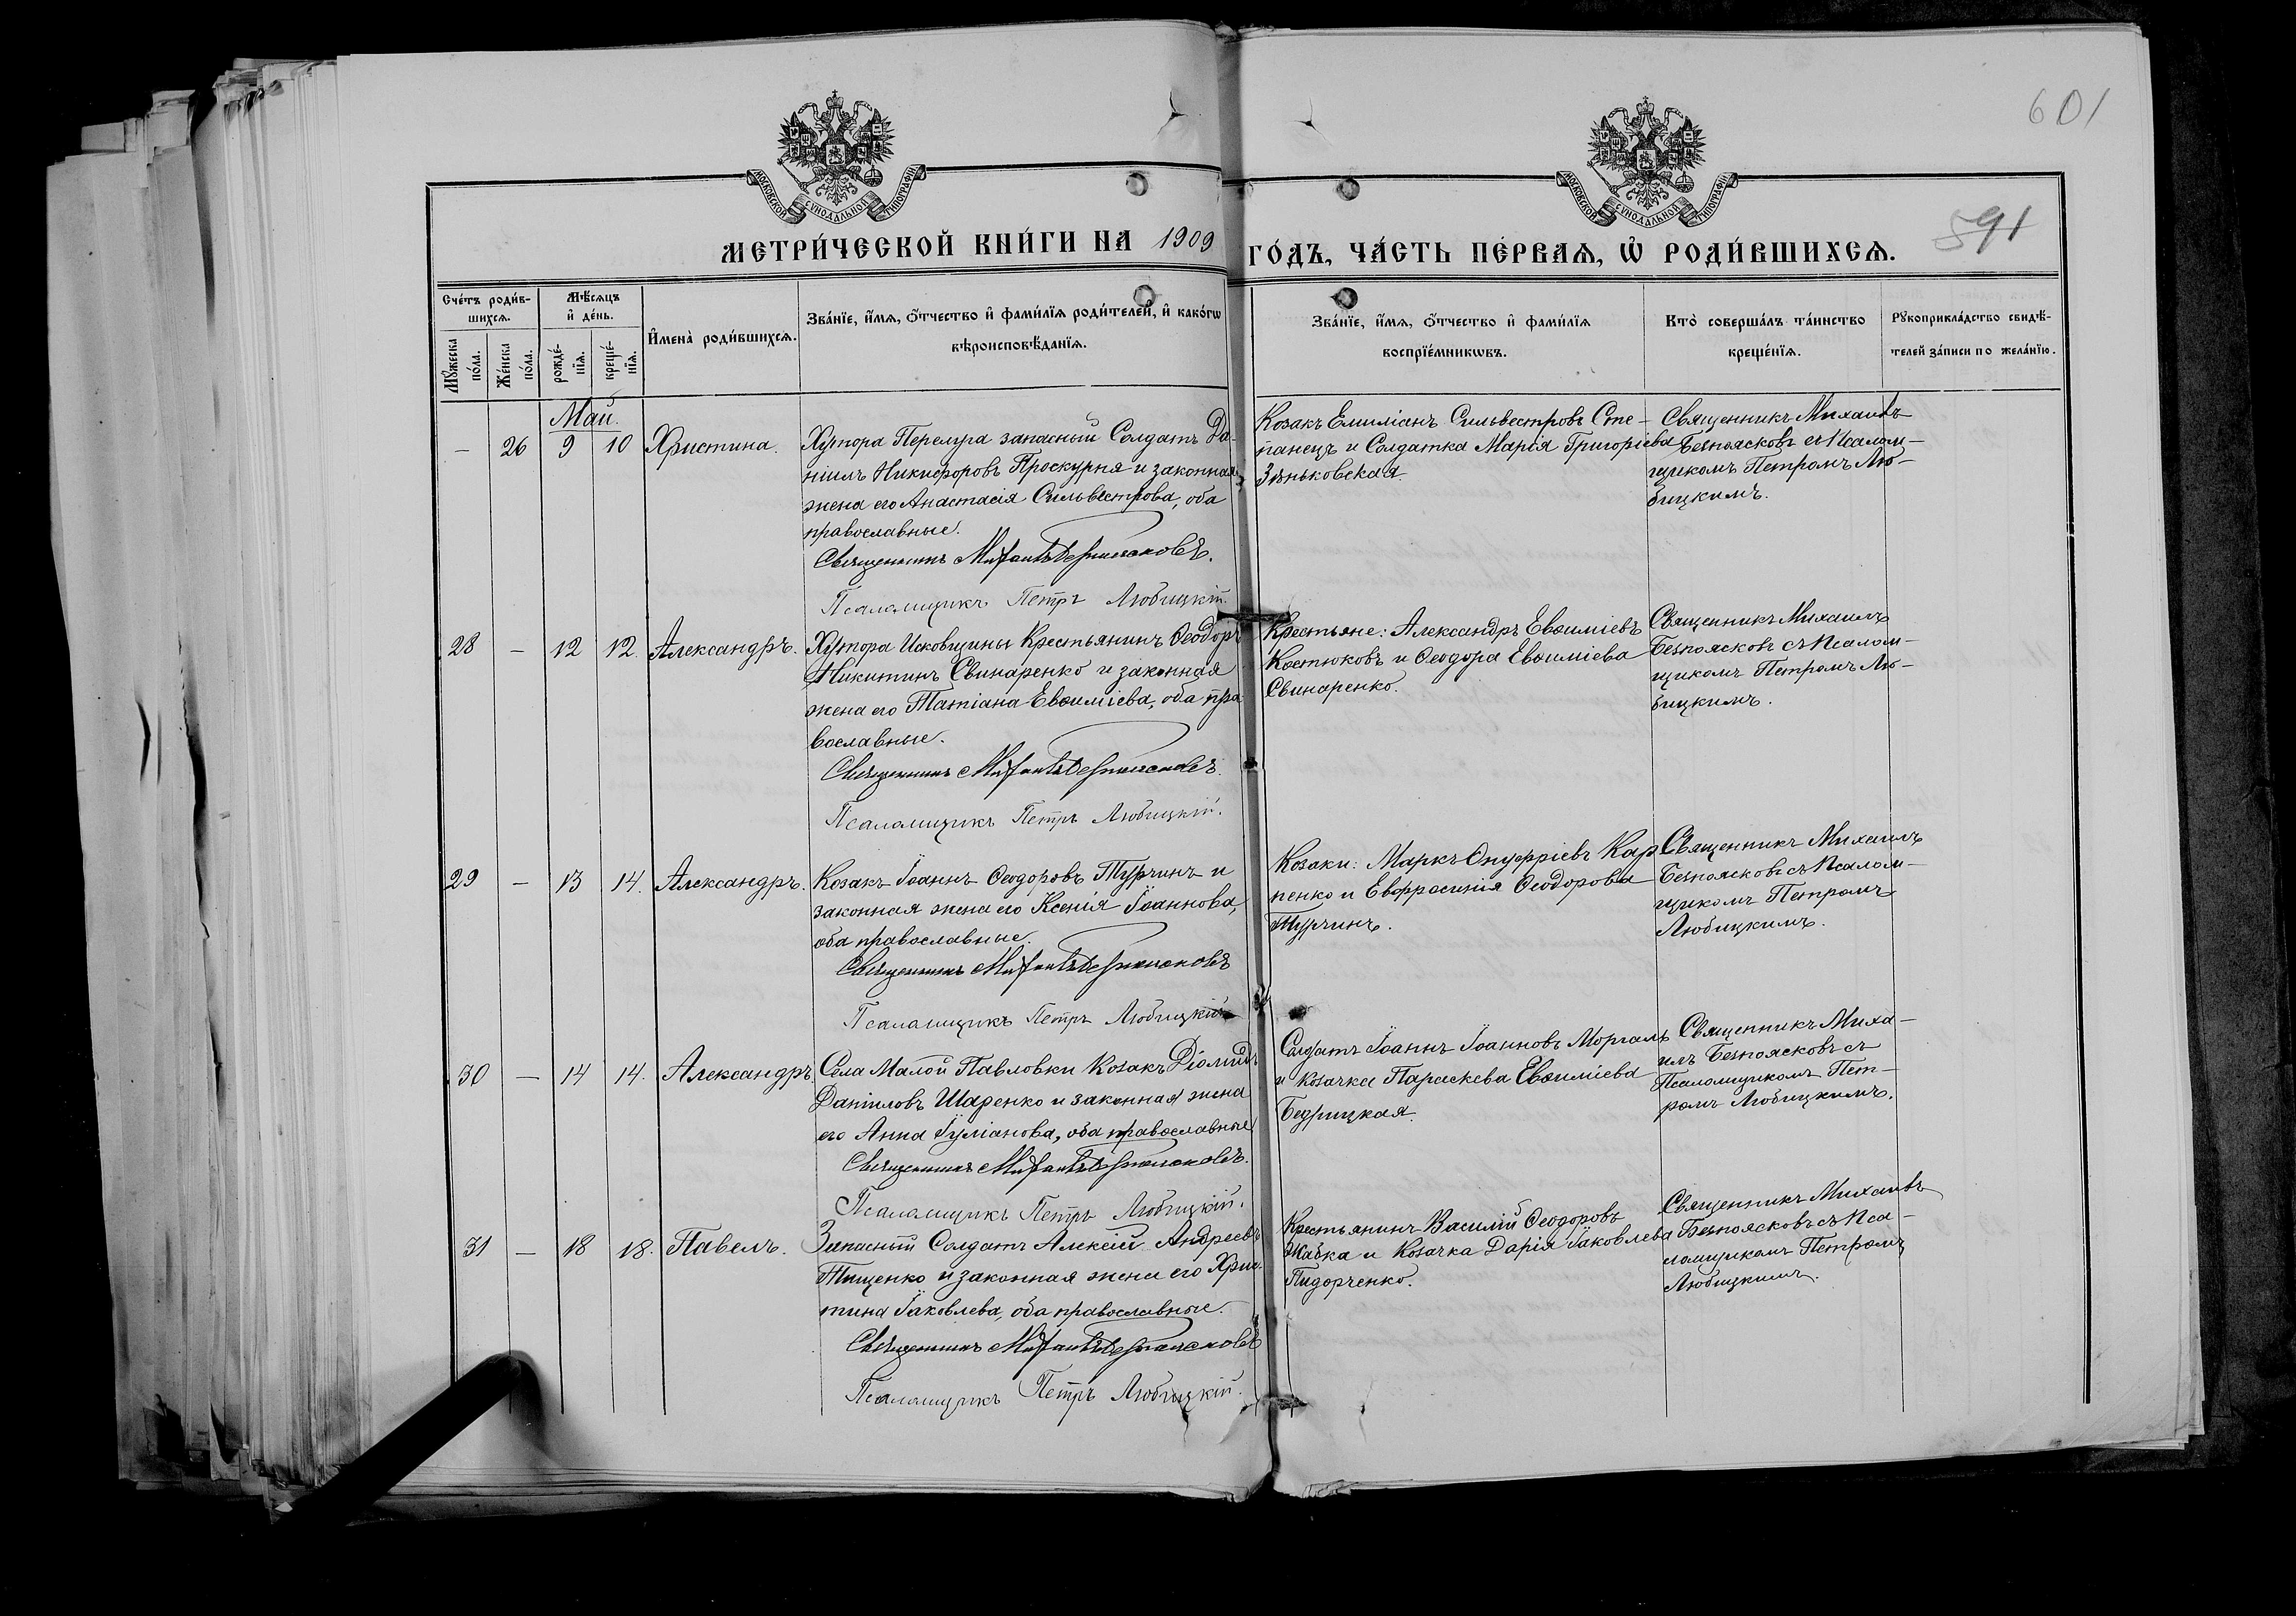 601
591
МОСКОВСКОЙ СѴНОДАЛЬНОЙ ТИПОГРАФІИ
МОСКОВСКОЙ СѴНОДАЛЬНОЙ ТИПОГРАФІИ
МЕТРИ́ЧЕСКОЙ КНИ́ГИ НА 1909 ГО́ДЪ, ЧА́СТЬ ПЕ́РВАѦ, Ѽ РОДИ́ВШИХСѦ.
Сче́тъ роди́в-
шихсѧ.
Мꙋ́жеска по́ла.
Же́нска по́ла.
Мѣ́сѧцъ
и҆ де́нь.
рожде́-
нїѧ.
креще́-
нїѧ.
И҆мена̀ роди́вшихсѧ.
Зва́нїе, и҆́мѧ, ѻ҆́тчество и҆ фами́лїѧ роди́телей, и҆ како́гѡ
вѣроисповѣ́данїѧ.
Зва́нїе, и҆́мѧ, ѻ҆́тчество и҆ фами́лїѧ
воспрїе́мникѡвъ.
Кто̀ соверша́лъ та́инство
креще́нїѧ.
Рꙋкоприкла́дство свидѣ́-
телей за́писи по жела́нїю.
Май.
— 26 9 10 Христина.
Хутора Перелура запасный Солдатъ Да-
ніилъ Никифоровъ Проскурня и законная
жена его Анастасія Сильвестрова, оба
православные.
Священникъ Михаилъ Безпоясковъ.
Псаломщикъ Петръ Любицкій.
Козакъ Емиліанъ Сильвестровъ Сте-
панецъ и Солдатка Марія Григоріева
Зѣньковская.
Священникъ Михаилъ
Безпоясковъ съ Псалом-
щикомъ Петромъ Лю-
бицкимъ.
28 — 12 12. Александръ.
Хутора Исковщины Крестьянинъ Ѳеодоръ
Никитинъ Свинаренко и законная
жена его Татіана Евѳиміева, оба пра-
вославные.
Священникъ Михаилъ Безпоясковъ.
Псаломщикъ Петръ Любицкій.
Крестьяне: Александръ Евѳиміевъ
Костюковъ и Ѳеодора Евѳиміева
Свинаренко.
Священникъ Михаилъ
Безпоясковъ съ Псалом-
щикомъ Петромъ Лю-
бицкимъ.
29 — 13 14. Александръ.
Козакъ Іоаннъ Ѳеодоровъ Турчинъ и
законная жена его Ксенія Іоаннова,
оба православные.
Священникъ Михаилъ Безпоясковъ
Псаломщикъ Петръ Любицкій
Козаки: Маркъ Онуфріевъ Кар-
пенко и Евфросинія Ѳеодорова
Турчинъ.
Священникъ Михаилъ
Безпоясковъ съ Псалом-
щикомъ Петромъ
Любицкимъ.
30 — 14 14. Александръ.
Села Малой Павловки Козакъ Діомидъ
Даніиловъ Шаренко и законная жена
его Анна Іуліанова, оба православные
Священникъ Михаилъ Безпоясковъ.
Псаломщикъ Петръ Любицкій.
Солдатъ Іоаннъ Іоанновъ Моргаль
и Козачка Параскева Евѳиміева
Бедрицкая.
Священникъ Миха-
илъ Безпоясковъ съ
Псаломщикомъ Пет-
ромъ Любицкимъ.
31 — 18 18. Павелъ.
Запасный Солдатъ Алексій Андреевъ
Тищенко и законная жена его Хрис-
тина Іаковлева, оба православные.
Священникъ Михаилъ Безпоясковъ
Псаломщикъ Петръ Любицкій.
Крестьянинъ Василій Ѳеодоровъ
Жабка и Козачка Дарія Іаковлева
Пидорченко.
Священникъ Михаилъ
Безпоясковъ съ Пса-
ломщикомъ Петромъ
Любицкимъ.